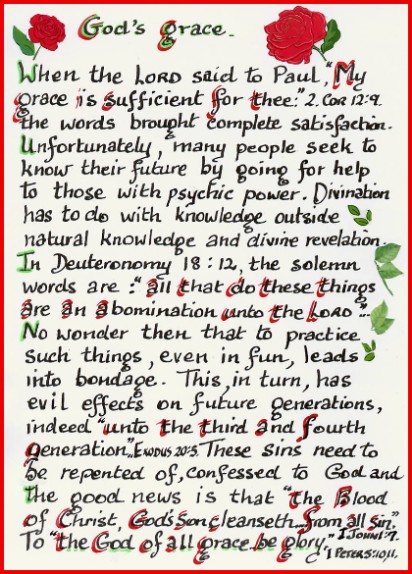 God's grace.
When the LORD said to Paul, "My
grace is sufficient for thee:" 2. Cor 12:9.
the words brought complete satisfaction.
Unfortunately, many people seek to
know their future by going for help
to those with psychic power. Divination
has to do with knowledge outside
natural knowledge and divine revelation.
In Deuteronomy 18:12, the solemn
words are: "all that do these things
are an abomination unto the LORD"...
No wonder then that to practice
such things, even in fun, leads
into bondage. This, in turn, has
evil effects on future generations,
indeed "unto the third and fourth
generation".. EXODUS 20:5. These sins need to
be repented of, confessed to God and
the good news is that "the Blood
of Christ, God's Son cleanseth....from all sin."
To "the God of all grace be glory." I JOHN 1:7.
I PETER 5:10,11.